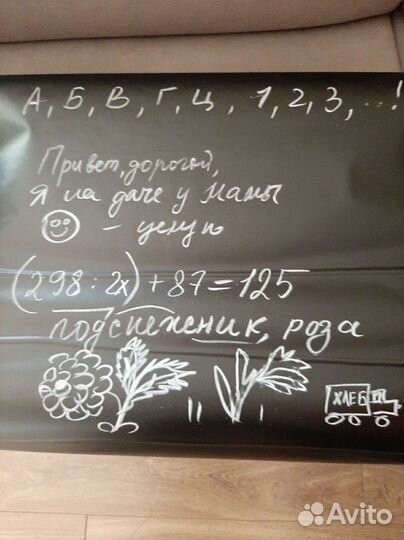 А, Б, В, Г, Ц, 1, 2, 3, ...!
Привет, дорогой,
Я на даче у мамы
- целую
(298 : 2x) + 87 = 125
подснежник, роза
ХЛЕБ
Avito